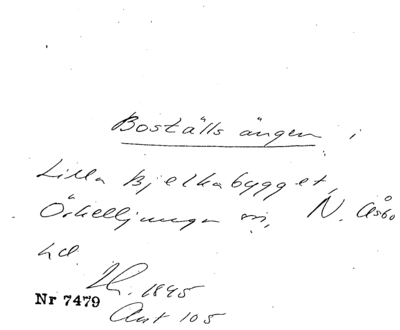 Boställs ängen i
Lilla Bjelkabygget,
Örkelljunga sn, N. Åsbo
hd
Lh. 1845
Nr 7479
Akt 105